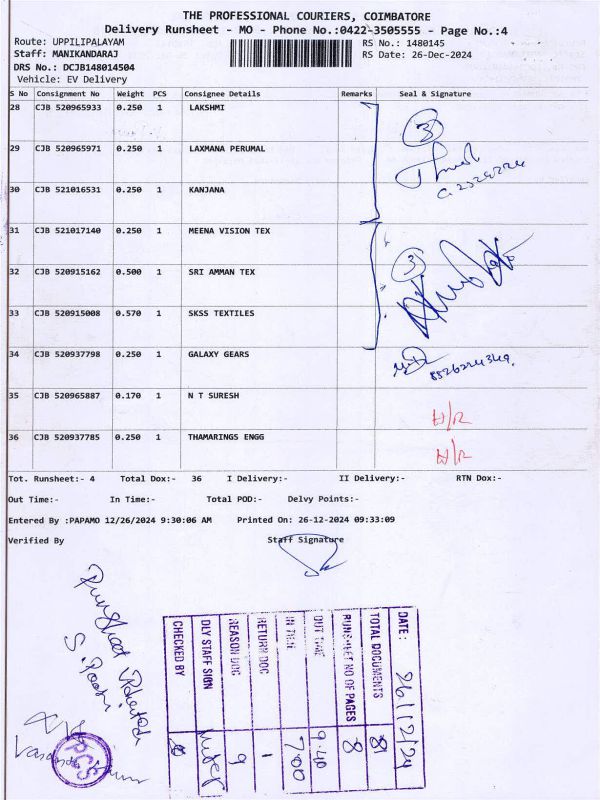 THE PROFESSIONAL COURIERS, COIMBATORE
Delivery Runsheet - MO - Phone No.:0422-3505555 - Page No.:4
Route: UPPILIPALAYAM RS No.: 1480145
Staff: MANIKANDARAJ RS Date: 26-Dec-2024
DRS No.: DCJB148014504
Vehicle: EV Delivery
S No Consignment No Weight PCS Consignee Details Remarks Seal & Signature
28 CJB 520965933 0.250 1 LAKSHMI
3
29 CJB 520965971 0.250 1 LAXMANA PERUMAL
30 CJB 521016531 0.250 1 KANJANA
31 CJB 521017140 0.250 1 MEENA VISION TEX
32 CJB 520915162 0.500 1 SRI AMMAN TEX
3
33 CJB 520915008 0.570 1 SKSS TEXTILES
34 CJB 520937798 0.250 1 GALAXY GEARS
35 CJB 520965887 0.170 1 N T SURESH
36 CJB 520937785 0.250 1 THAMARINGS ENGG
Tot. Runsheet:- 4 Total Dox:- 36 I Delivery:- II Delivery:- RTN Dox:-
Out Time:- In Time:- Total POD:- Delvy Points:-
Entered By :PAPAMO 12/26/2024 9:30:06 AM Printed On: 26-12-2024 09:33:09
Verified By Staff Signature
DATE: 26/12/24
TOTAL DOCUMENTS 81
RUNSHEET NO OF PAGES 8
OUT TIME 9.40
IN TIME 700
RETURN DOC 1
REASON DOC 9
DLY STAFF SIGN
CHECKED BY
Runsheet
S.
PCS